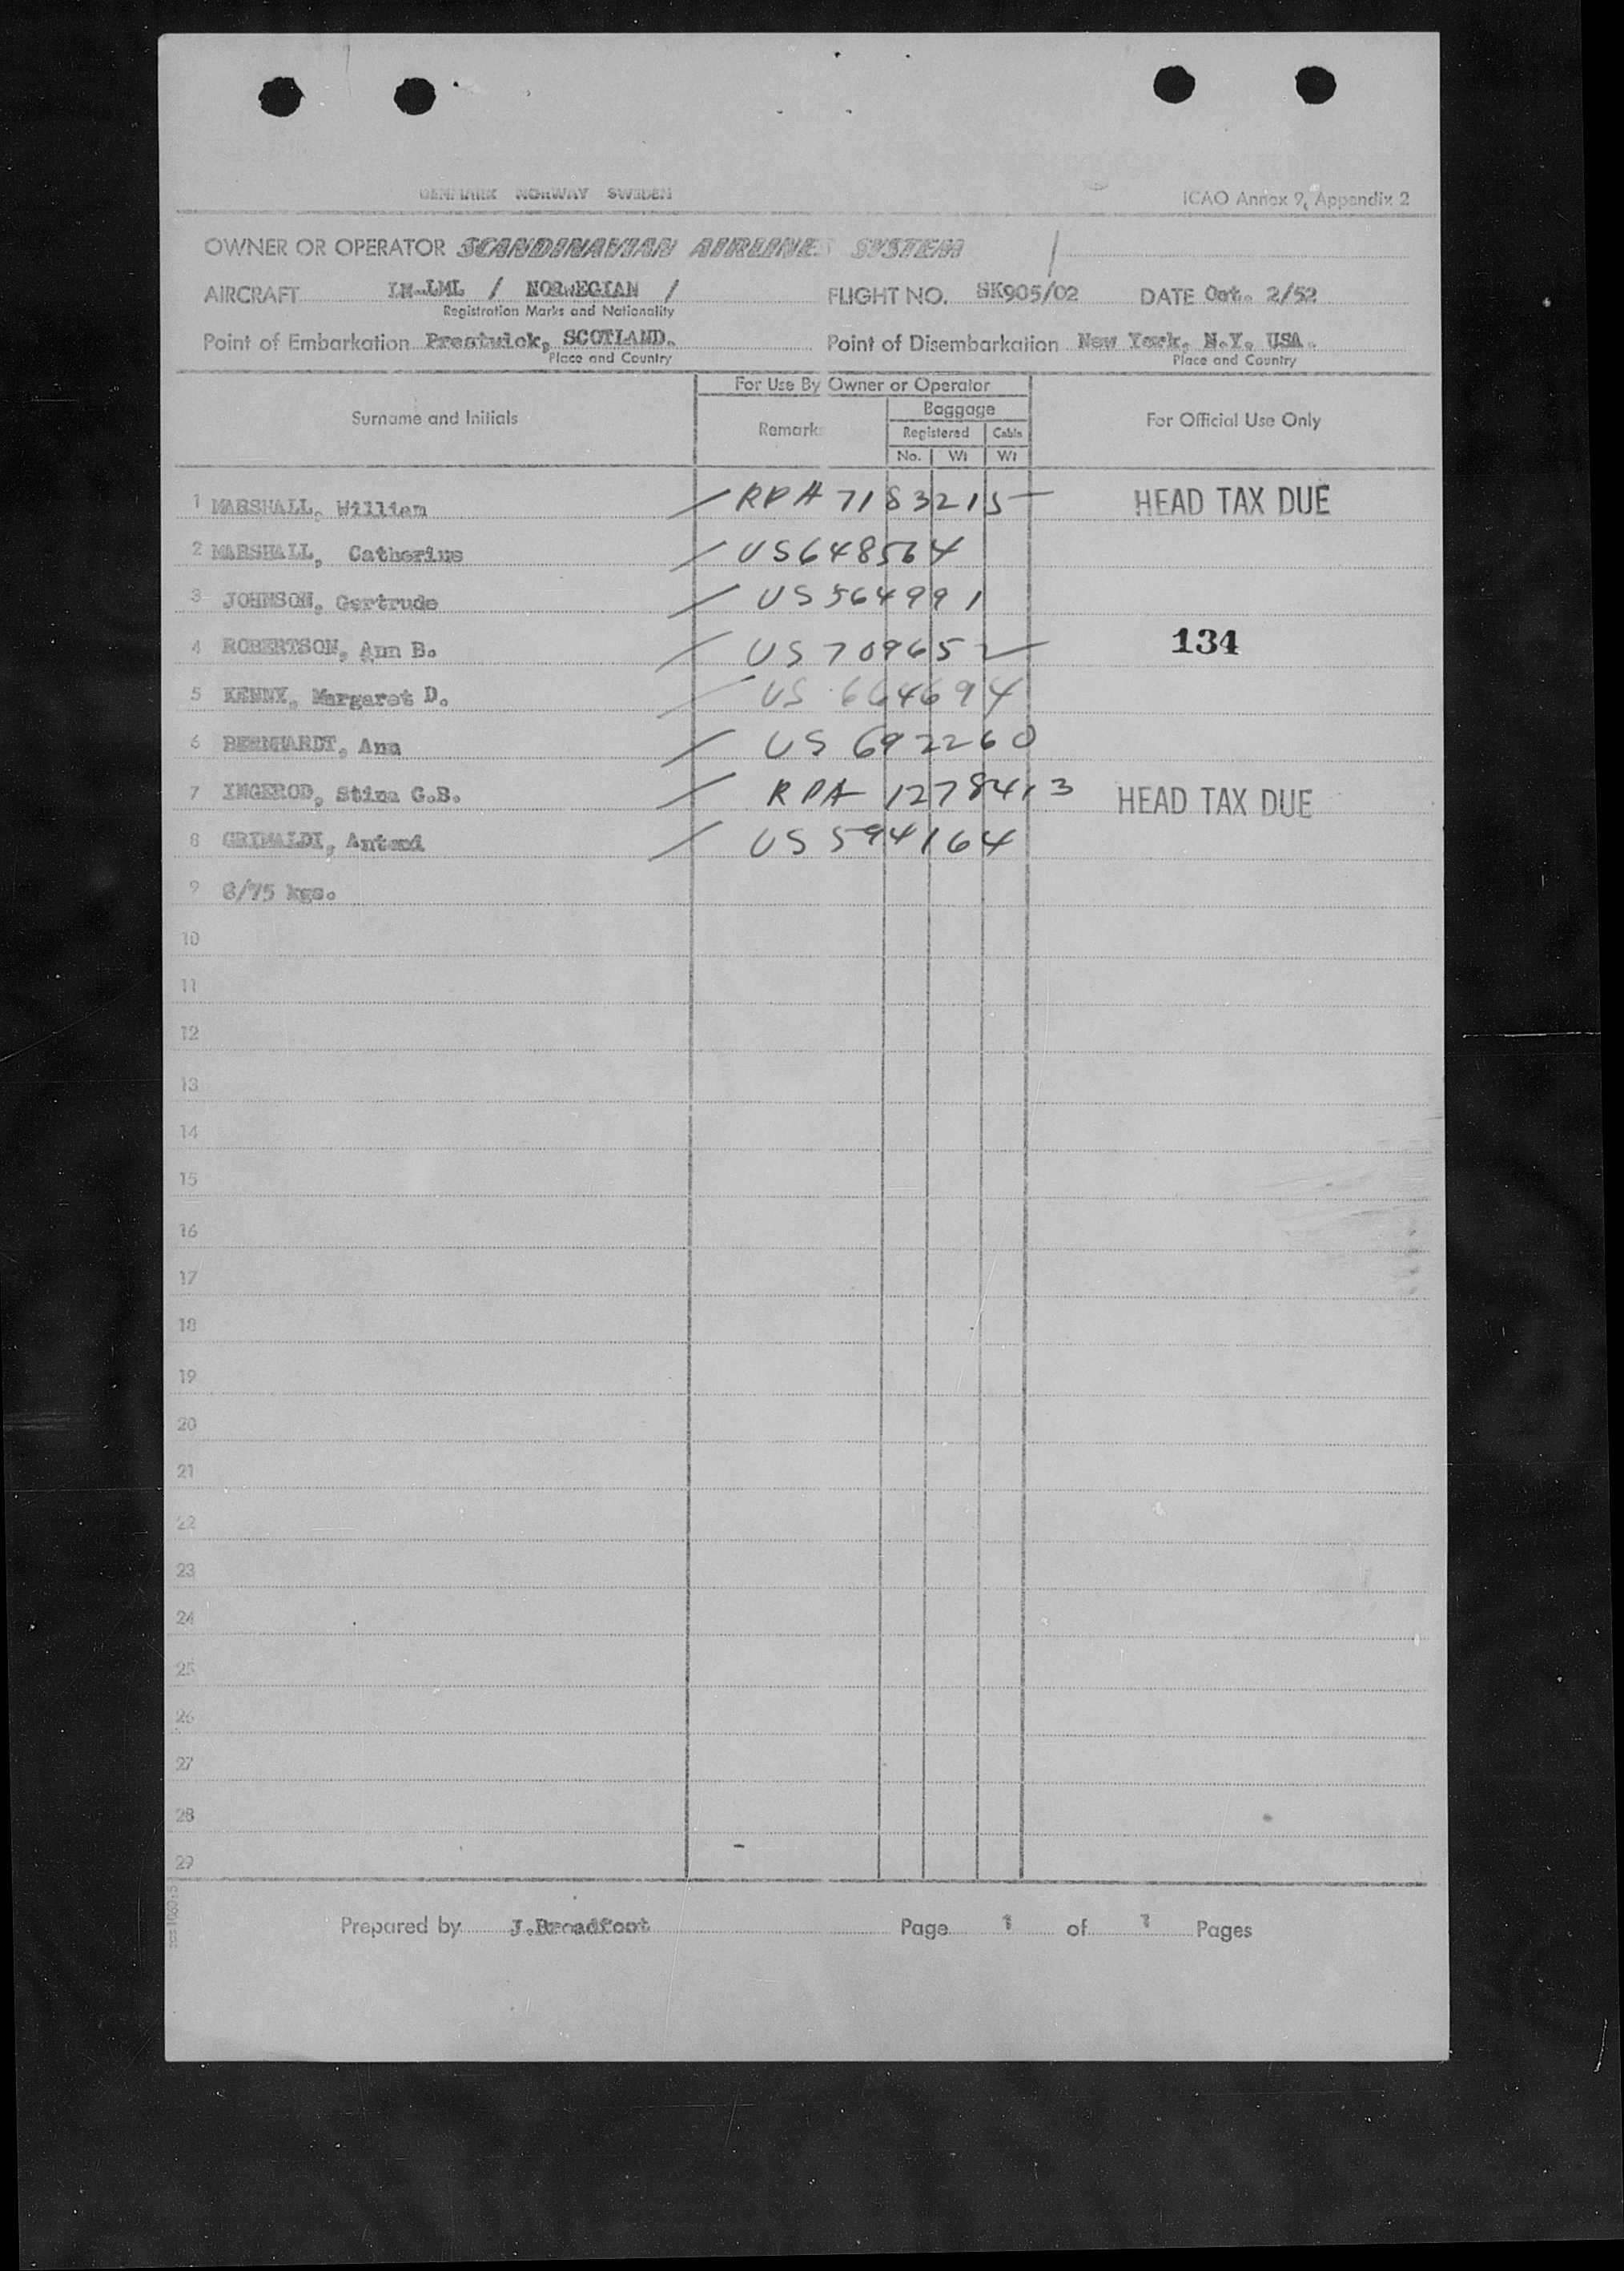 DENMARK NORWAY SWEDEN
ICAO Annex 9, Appendix 2
OWNER OR OPERATOR SCANDINAVIAN AIRLINES SYSTEM
AIRCRAFT LN-LML / NORWEGIAN /
FLIGHT NO. SK905/02 DATE Oct. 2/52
Registration Marks and Nationality
Point of Embarkation Prestwick, SCOTLAND.
Point of Disembarkation New York, N.Y. USA.
Place and Country
Place and Country
For Use By Owner or Operator
Surname and Initials
Remark
Baggage
For Official Use Only
Registered Cabin
No. Wt Wt
1 MARSHALL, William / RPA 7183215 HEAD TAX DUE
2 MARSHALL, Catherine / US 648564
3 JOHNSON, Gertrude / US 564991
4 ROBERTSON, Ann B. / US 709652 134
5 KENNY, Margaret D. / US 664694
6 BERNHARDT, Ana / US 692260
7 INGEROD, Stina G.B. / RPA 1278413 HEAD TAX DUE
8 GRIMALDI, Antoni / US 594164
9 8/75 kgs.
10
11
12
13
14
15
16
17
18
19
20
21
22
23
24
25
26
27
28
29
Prepared by J.Broadfoot
Page 1 of 1 Pages